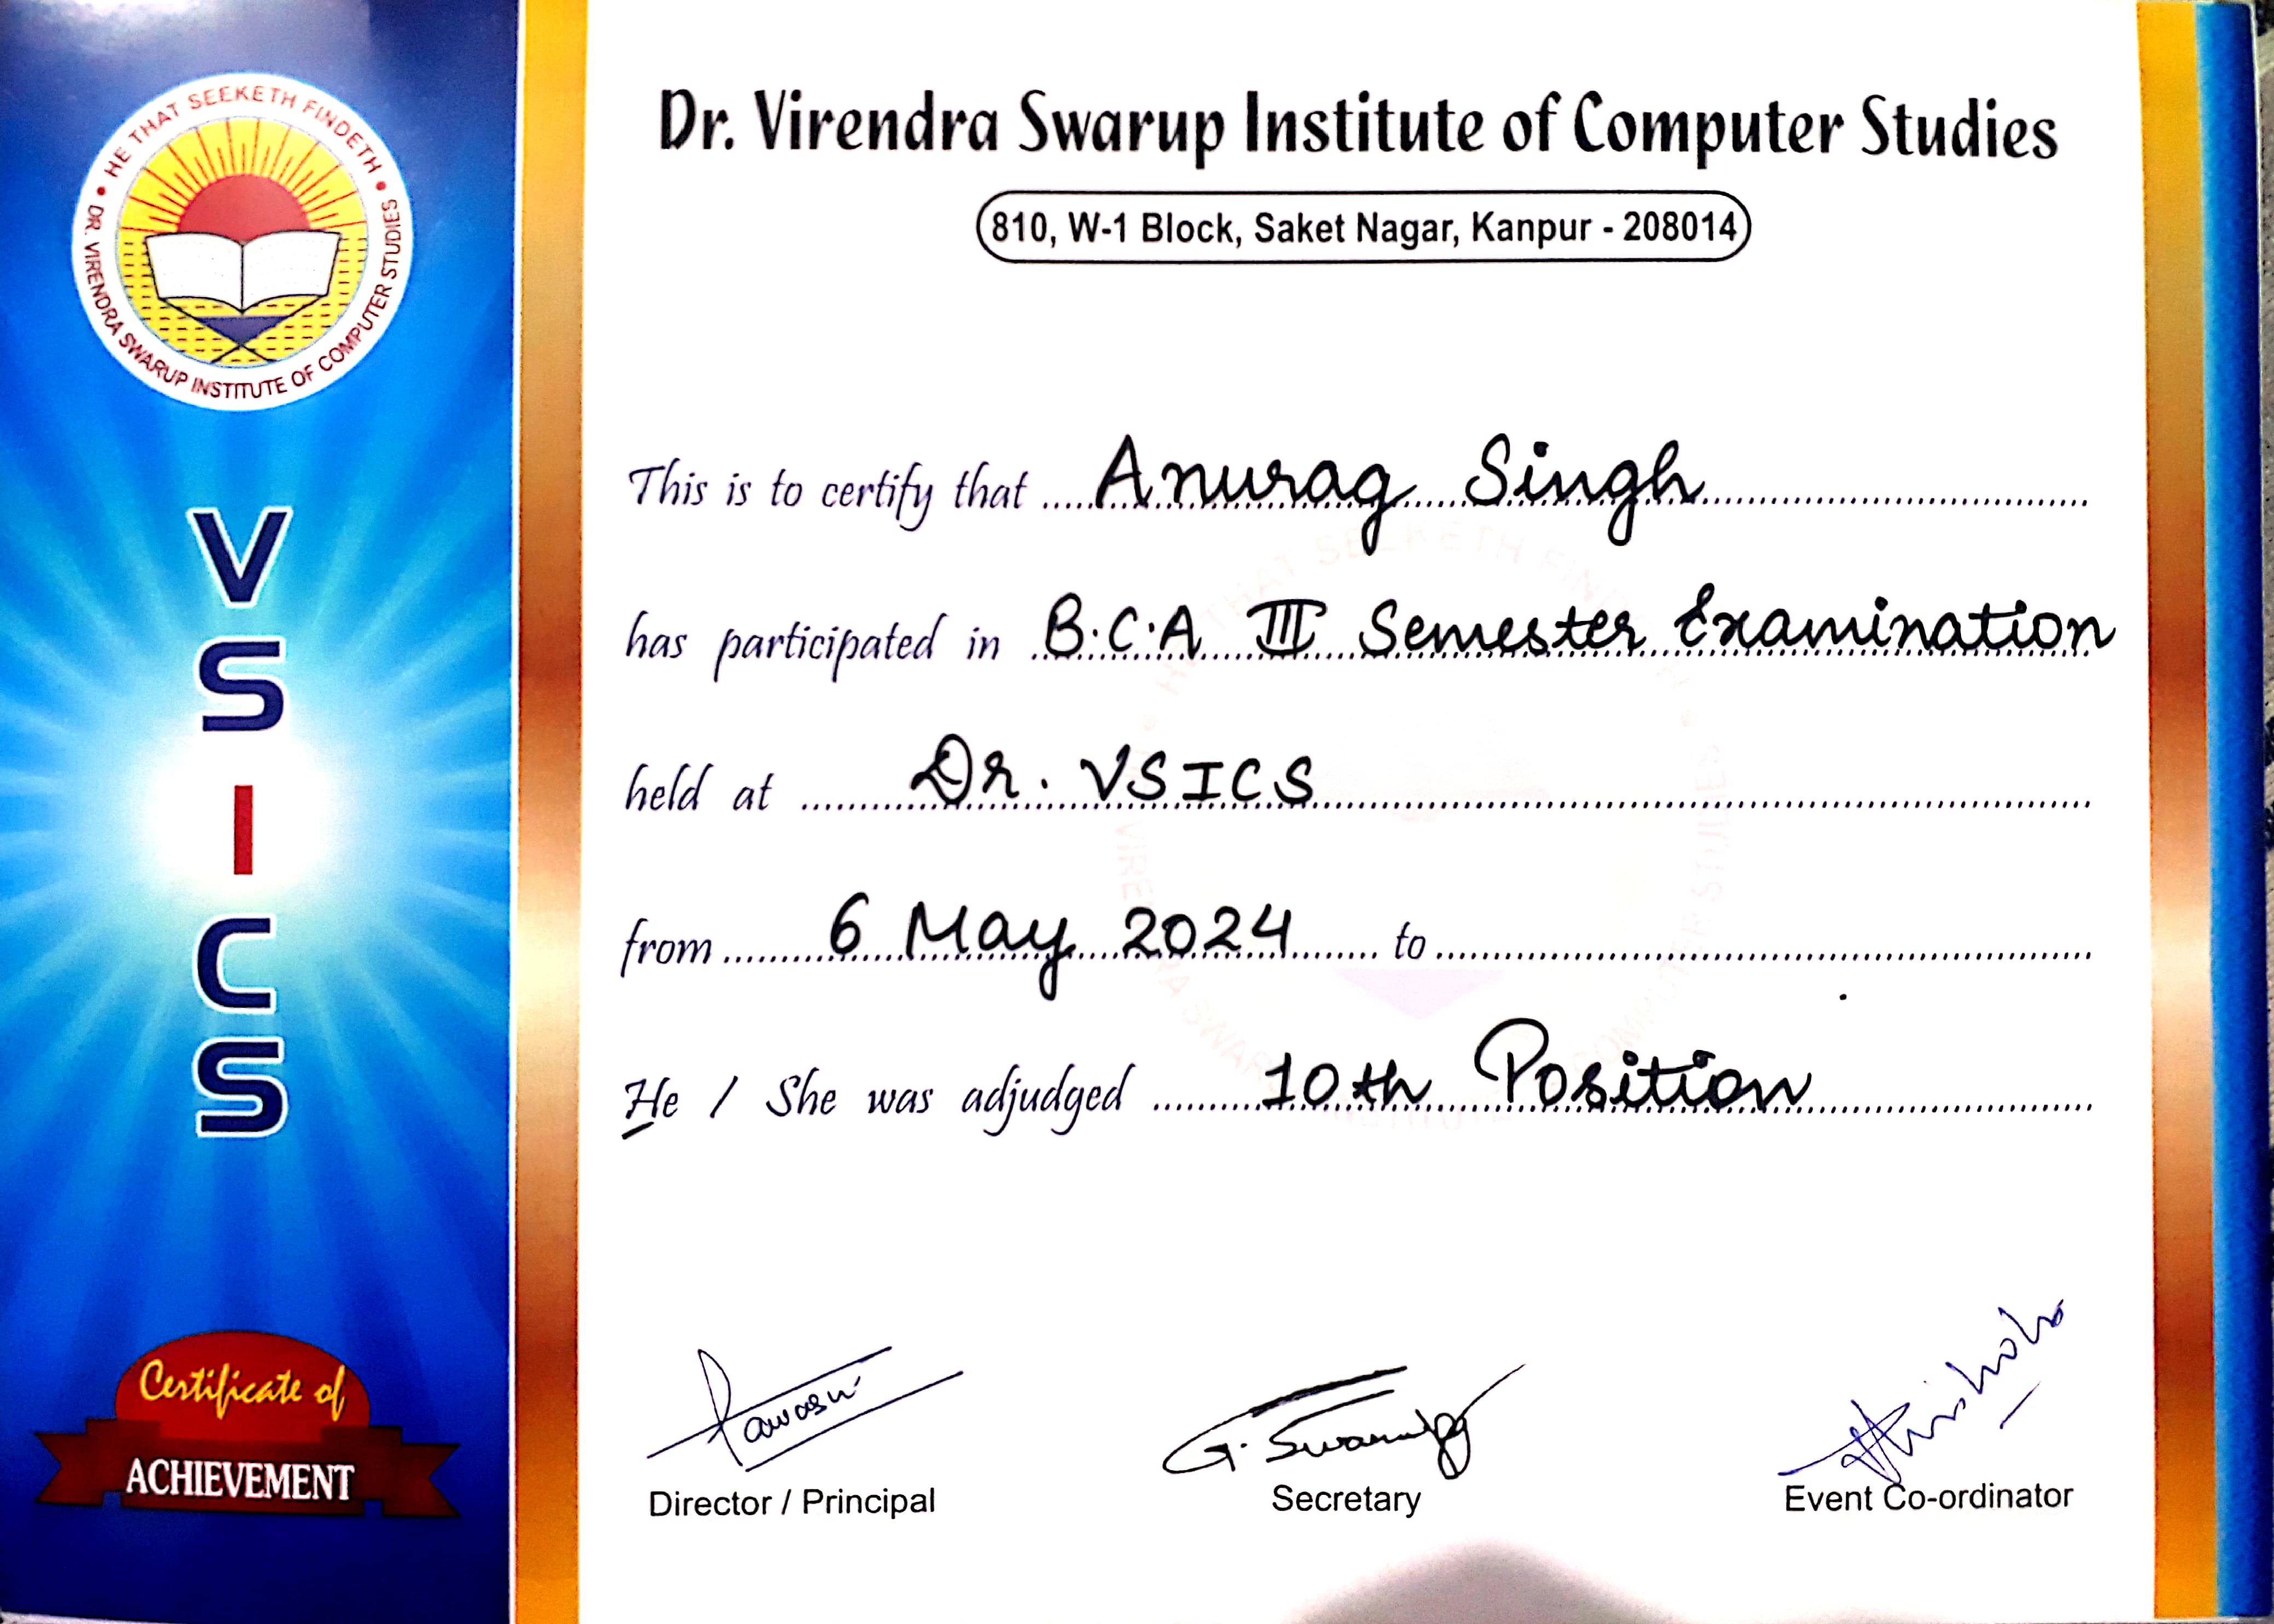 HE THAT SEEKETH FINDETH
DR. VIRENDRA SWARUP INSTITUTE OF COMPUTER STUDIES
VSICS
Certificate of
ACHIEVEMENT
Dr. Virendra Swarup Institute of Computer Studies
810, W-1 Block, Saket Nagar, Kanpur - 208014
This is to certify that Anurag Singh
has participated in B.C.A III Semester Examination
held at Dr. VSICS
from 6 May 2024 to
He / She was adjudged 10th Position
G. Swarup
Director / Principal Secretary Event Co-ordinator